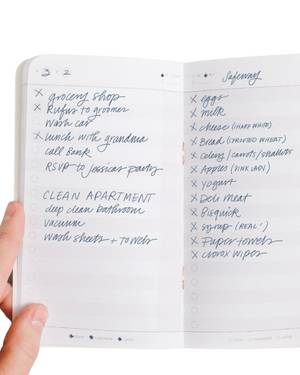 3 2
grocery shop
Rufus to groomer
wash car
lunch with grandma
call Bank
RSVP to Jessicas party
CLEAN APARTMENT
deep clean bathroom
vacuum
wash sheets + towels
Safeway
eggs
milk
cheese (SHARP WHITE)
Bread (SPROUTED WHEAT)
Celery / carrots / shallots
Apples (PINK LADY)
yogurt
Deli meat
Bisquick
syrup (REAL!)
Paper towels
clorox wipes